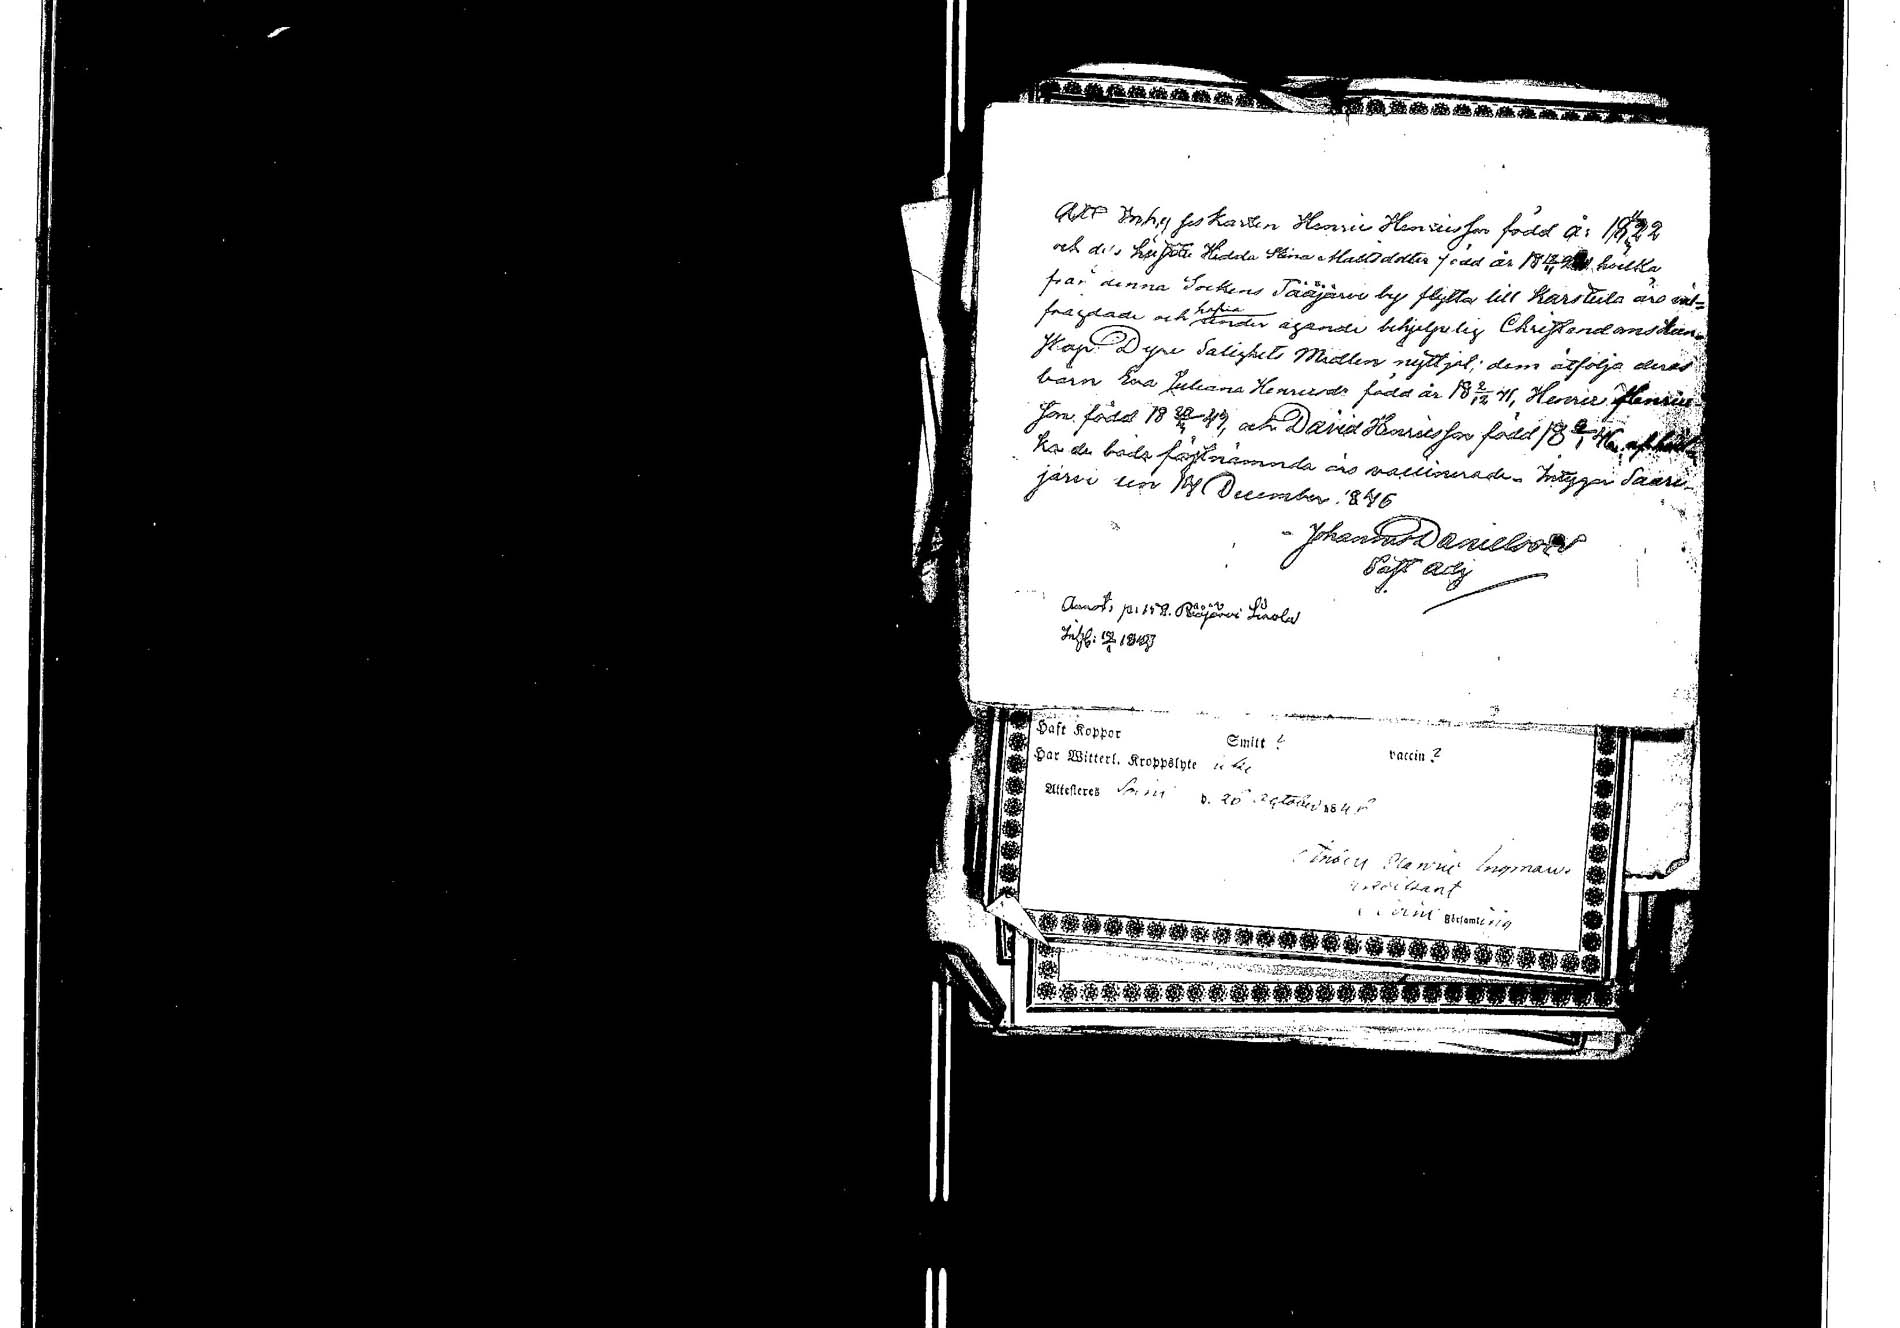 Att Inhyseskarlen Henric Henricsson född år 1822
och dess hustru Hedda Stina Matsdotter född år 18 hvilka
från denna Sockens Pääjärvi by flytta till Karstula äro väl-
frägdade och hafva under ägande behjelpelig Christendomskun-
skap Dyre Salighets Medlen nyttjat; dem åtfölja deras
barn Eva Juliana Henricsdr född år 18 2/12 41, Henric Henrics-
son född 18 43, och David Henricsson född 18 2/1 46, af hvil-
ka de båda förstnämnda äro vaccinerade. Intygar Saari-
järvi den 14 December 1846
Johannes Danielsson
Past Adj
Annot. p. 158. Pääjärvi
1847
Haft Koppor Smitt ? vaccin ?
Har Witterl. Kroppslyte icke
Attesteres Soini d. 26 October 1846
Henric Ingman.
Soini Församling